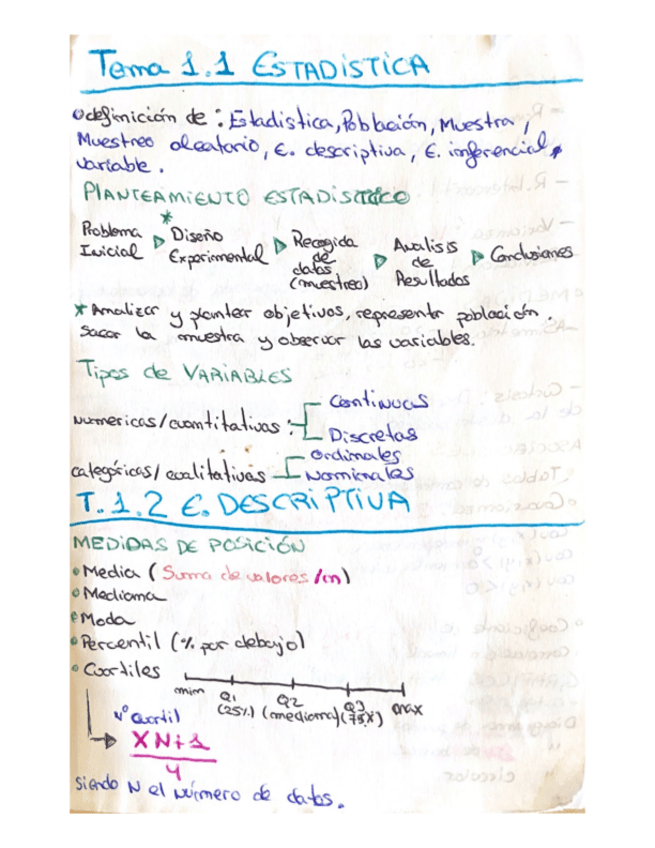 Tema 1.1 ESTADÍSTICA
definición de: Estadistica, Población, Muestra,
Muestreo aleatorio, E. descriptiva, E. inferencial,
variable.
PLANTEAMIENTO ESTADÍSTICO
Problema Inicial ▷ * Diseño Experimental ▷ Recogida de datos (muestreo) ▷ Analisis de Resultados ▷ Conclusiones
* Analizar y plantear objetivos, representar población.
sacar la muestra y observar las variables.
Tipos de VARIABLES
numericas/cuantitativas:
Continuas
Discretas
categóricas/cualitativas
Ordinales
Nominales
T.1.2 E. DESCRIPTIVA
MEDIDAS DE POSICIÓN
• Media (Suma de valores/n)
• Mediana
• Moda
• Percentil (% por debajo)
• Cuartiles
min Q1 (25%) Q2 (mediana) Q3 (75%) max
Nº Cuartil
X N+1
4
siendo N el número de datos.